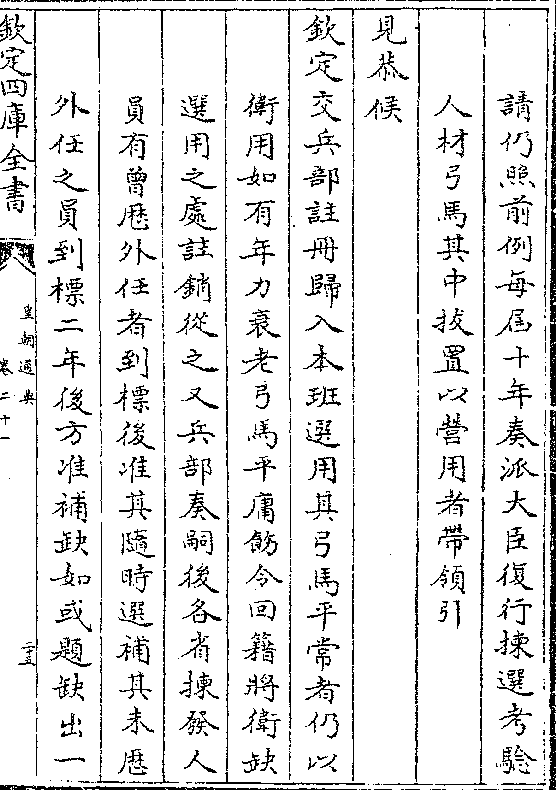 請仍照前例每屆十年奏派大臣復行揀選考驗
人材弓馬其中拔置以營用者帶領引
見恭候
欽定交兵部註冊歸入本班選用其弓馬平常者仍以
衛用如有年力衰老弓馬平庸飭令回籍將衛缺
選用之處註銷從之又兵部奏嗣後各省揀發人
員有曾歴外任者到標後准其隨時選補其未歴
外任之員到標二年後方准補缺如或題缺出一
欽定四庫全書
皇朝通典
卷二十一
二十五